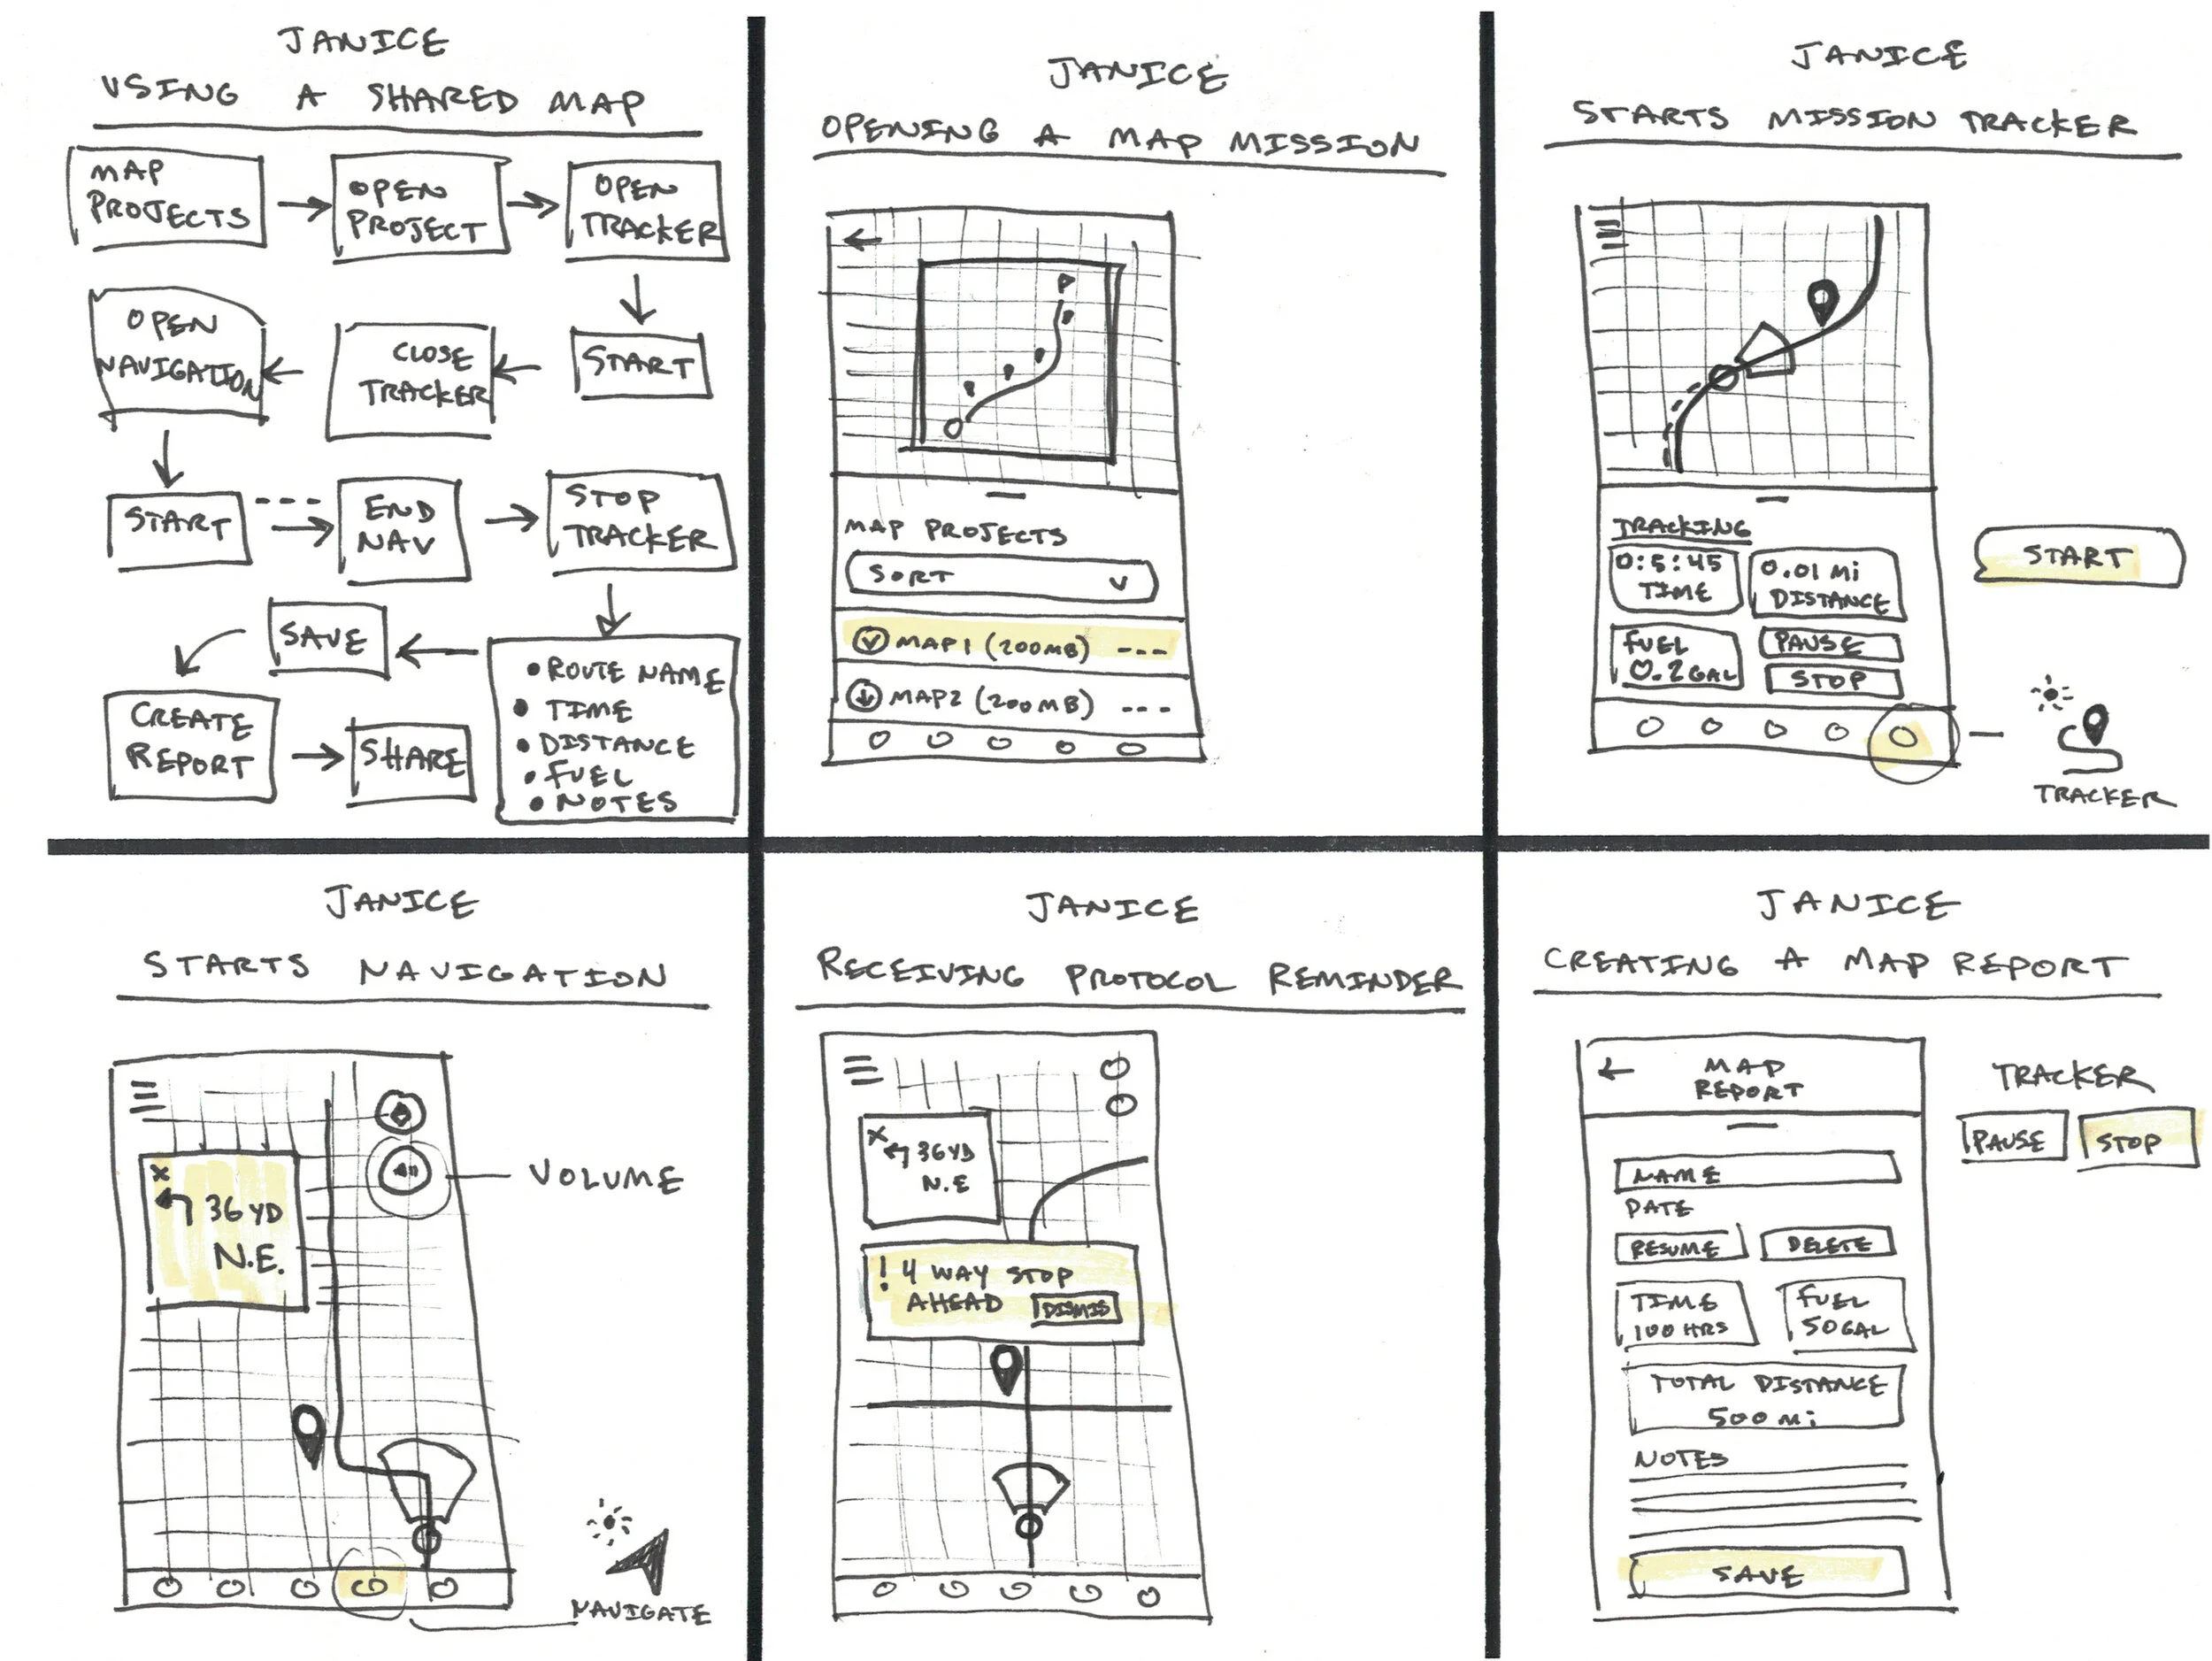 JANICE
USING A SHARED MAP
MAP
PROJECTS
OPEN
PROJECT
OPEN
TRACKER
START
CLOSE
TRACKER
OPEN
NAVIGATION
START
END
NAV
STOP
TRACKER
• ROUTE NAME
• TIME
• DISTANCE
• FUEL
• NOTES
SAVE
CREATE
REPORT
SHARE
JANICE
OPENING A MAP MISSION
MAP PROJECTS
SORT
MAP1 (200MB) ---
MAP2 (200MB) ---
JANICE
STARTS MISSION TRACKER
TRACKING
0:5:45
TIME
0.01 Mi
DISTANCE
FUEL
0.2GAL
PAUSE
STOP
START
TRACKER
JANICE
STARTS NAVIGATION
X
36 YD
N.E.
VOLUME
NAVIGATE
JANICE
RECEIVING PROTOCOL REMINDER
X
36 YD
N.E
! 4 WAY STOP
AHEAD
DISMIS
JANICE
CREATING A MAP REPORT
MAP
REPORT
NAME
DATE
RESUME
DELETE
TIME
100 HRS
FUEL
50GAL
TOTAL DISTANCE
500 Mi
NOTES
SAVE
TRACKER
PAUSE
STOP